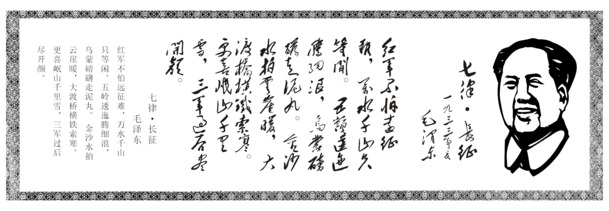 七律·長征
毛澤東
紅軍不怕遠征
難，萬水千山只
等閒。五嶺逶迤
騰細浪，烏蒙磅
礴走泥丸。金沙
水拍雲崖暖，大
渡橋橫鐵索寒。
更喜岷山千里
雪，三軍過後盡
開顏。
七律·长征
毛泽东
红军不怕远征难，万水千山
只等闲。五岭逶迤腾细浪，
乌蒙磅礴走泥丸。金沙水拍
云崖暖，大渡桥横铁索寒。
更喜岷山千里雪，三军过后
尽开颜。